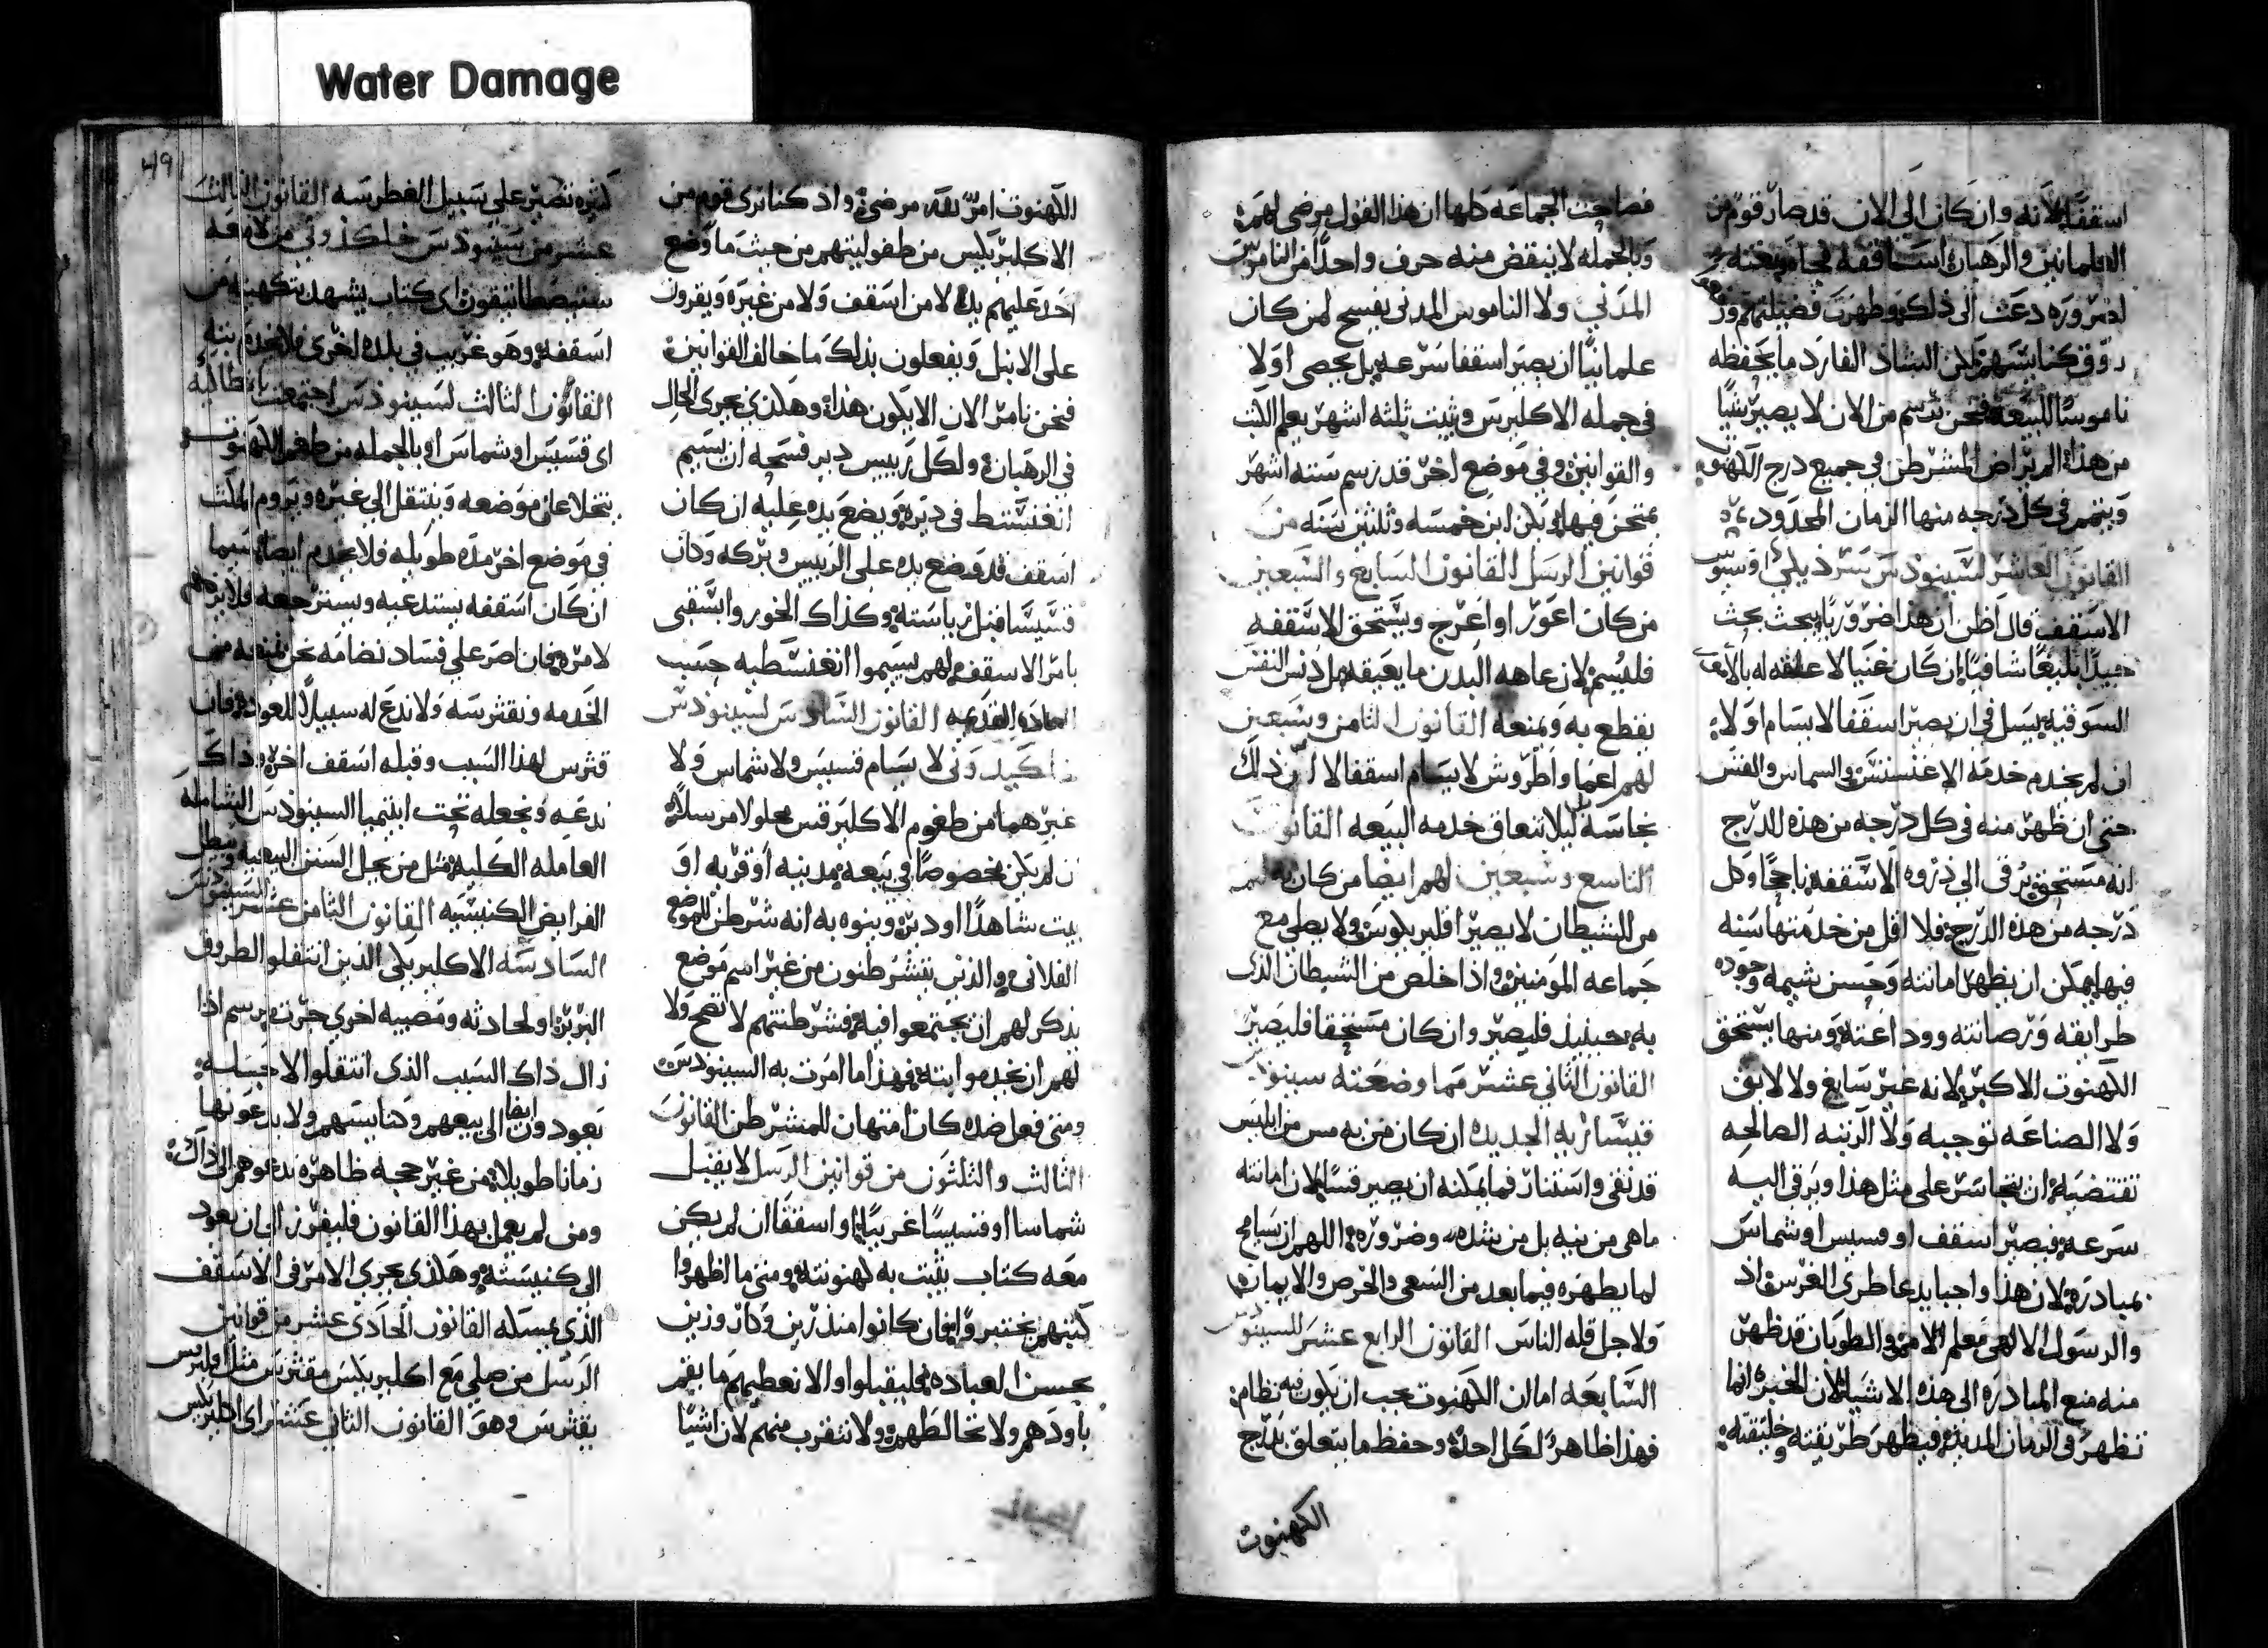 Water Damage
491
اسقفًا لانه وان كان الى الان قد صار قوم من
العلمانيين والرهبان اساقفه
لضروره دعت الى ذلك وظهرت فضيلتهم
كنا نتبعهم لكن الشاذ الفارد ما يحفظه
ناموسًا للبيعه فنحن نرسم من الان لا يصير شيًا
من هذا المراض المشرطن في جميع درج الكهنوه
ويتمم في كل درجه منها الزمان المحدود
القانون العاشر لسينودس سرذيكي اوسيوس
الاسقف قال اظن ان هذا ضروريًا يبحث بحث
جيدًا بليغًا شافيًا ان كان غنيا لا علقه له بالامه
السوقيه يسل في ان يصير اسقفا لا يسام اولا
ان لم يخدم خدمه الاغنسطس والشماس والقس
حتى ان ظهر منه في كل درجه من هذه الدرج
انه مستحق يرقى الى ذروه الاسقفه ناجحًا وكل
درجه من هذه الدرج فلا اقل من خدمتها سنه
فيها يمكن ان يظهر امانته وحسن شيمه وجوده
طرايقه ورصانته ووداعته ومنها يستحق
الكهنوت الاكبر لانه غير سايغ ولا لايق
ولا الصناعه توجبه ولا الرتبه الصالحه
تقتضيه ان يتجاسر على مثل هذا ويرقى اليه
سرعه فيصير اسقف او قسيس او شماس
بمبادره لان هذا واجبا يدعا طري الغرس اذ
والرسول الالهي معلم الامم والطوبان قد ظهر
منه منع المبادره الى هذه الاشيا لان الخبره انما
تظهر في الزمان المديد فيظهر طريقته وخليقته
فصاحت الجماعه كلها ان هذا القول مرضى لهم
وبالجمله لا ينقض منه حرف واحدًا من الناموس
المدني ولا الناموس المدنى يفسح لمن كان
علمانيًا ان يصير اسقفا سرعه بل يحصى اولا
في جمله الاكليرس ويثبت ثلثه اشهر يعلم الكتب
والقوانين وفي موضع اخر قد رسم سته اشهر
يمتحن فيها يكن ابن خمسه وثلثين سنه من
قوانين الرسل القانون السابع والسبعين
من كان اعور او اعرج ويستحق الاسقفه
فليسم لان عاهه البدن ما يعيقه بل دنس النفس
يقطع به ويمنعه القانون الثامن وسبعين
لهم اعما واطروش لا يسام اسقفا لا ان ذلك
نجاسه ليلا تتعاق خدمه البيعه القانون
التاسع وسبعين لهم ايضا من كان به لمم
من الشيطان لا يصير اقليريكوس ولا يصلي مع
جماعه المومنين واذا خلص من الشيطان الذى
به حينيذ فليصير وان كان مستحقا فليصير
القانون الثاني عشر مما وضعته سينودس
قيساريه الجديده ان كان من به مس من ابليس
قد نقى واستنار فما يمكنه ان يصير قسًا لان امانته
ماهى من نيه بل من شده وضروره اللهم ان يسامح
لما يظهره فيما بعد من السعي والحرص والايمان
ولاجل قله الناس القانون الرابع عشر للسينودس
السابعه امالان الكهنوت يجب ان يكون فيه نظام
فهذا ظاهر لكل احد وحفظ ما يتعلق بدرج
الكهنوت
الكهنوت امر مرضى واذ كنا نرى قوم من
الاكليريكيس من طفوليتهم من حيث ما وضع
احد عليهم يده لا من اسقف ولا من غيره ويقرون
على الانبل ويفعلون بذلك ما خالف القوانين
فنحن نامر الان الا يكون هذا وهكذي يجرى الحال
في الرهبان ولكل رييس دير فسحه ان يسيم
انغنسطط في ديره ويضع يده عليه ان كان
اسقف قد وضع يده على الرييس وبركه وكان
قسيسًا قبل رياسته وكذاك الخورابسقبى
بامر الاسقف لهم يسيموا انغنسطيه حسب
العاده القديمه القانون السادس لسينودس
خلكيدوني لا يسام قسيس ولا شماس ولا
غيرهما من طغوم الاكليرقس محلولا مرسلًا
ان لم يكن مخصوصًا في بيعه مدينه او قريه او
بيت شاهدًا او دير وينوه به انه شرطن للموضع
الفلاني والذين يتشرطنون من غير اسم موضع
يذكر لهم ان يجتمعوا فيه فشرطنتهم لا تصح ولا
لهم ان يخدموا ابته فهذا ما امرت به السينودس
ومتى فعل ضده كان امتهان للمتشرطن القانون
الثالث والثلثون من قوانين الرسل لا يقبل
شماسا او قسيسًا غريبًا او اسقفًا ان لم يكن
معه كتاب يثبت به كهنوتته ومتى ما اظهروا
كتبهم يختبروا فان كانوا منذرين وكارزين
بحسن العباده فليقبلوا والا نعطيهم ما يقم
باودهم ولا تخالطهم ولا نتقرب منهم لان اشيًا
كثيره تصير على سبيل الغطرسه القانون الثالث
عشر من سينودس خلكذوني من لا معه
سنسطاتيقون اى كتاب يشهد بتكهينه من
اسقفه وهو غريب في بلده اخرى فلا يخدم بته
القانون الثالث لسينودس اجتمعت بانطاكيه
اى قسيس او شماس او بالجمله من طغم الكهنوت
يتخلا عن موضعه وينتقل الى غيره ويروم المكث
في موضع اخر مده طويله فلا يخدم ايضا سيما
ان كان اسقفه يستدعيه ويسترجعه فلا يزعم
لامره فان اصر على فساد نضامه نحن نمنعه من
الخدمه ونقثرسه ولا ندع له سبيلًا للعوده فان
قثرس لهذا السبب وقبله اسقف اخر وذاك
ندعه ونجعله تحت ابيتميا السينودس الشامله
العامله الكليه مثل من يحل السنن البيعيه ويبطل
الفرايض الكنيسيه القانون الثامن عشر لسينودس
السادسه الاكليريكي الذين انتقلوا لطروف
البربر او لحادثه ومصيبه اخرى جرت يرسم اذا
زال ذاك السبب الذى انتقلوا لاجله
يعودون ايضا الى بيعهم وكنايسهم ولا يدعونها
زمانا طويلا من غير حجه ظاهره تدعوهم الى ذاك
ومن لم يعمل بهذا القانون فليفرز الى ان يعود
الى كنيسته وهكذي يجري الامر في الاسقف
الذي يمسكه القانون الحادي عشر من قوانين
الرسل من صلي مع اكليريكيس مقثرس مثل اقليريكيس
يقثرس وهو القانون الثاني عشر اى اكليريكيس